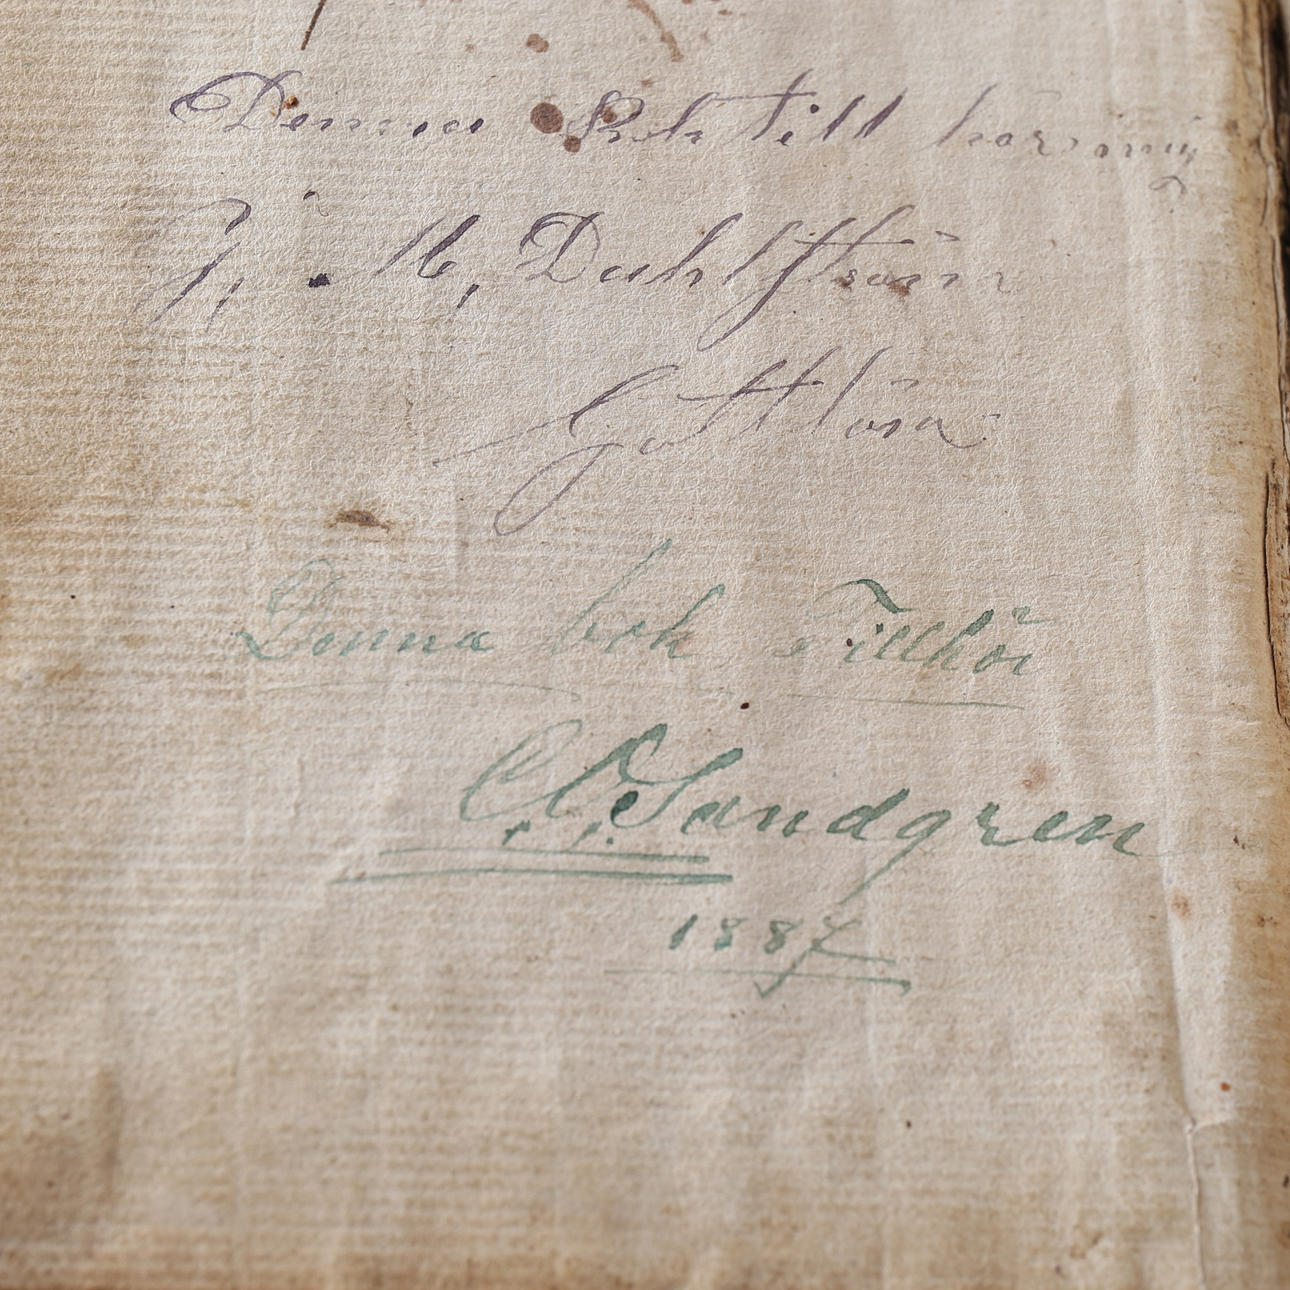 Denna Bok till hör mig
G. M, Dahlström
Gottlösa
Denna bok Tillhör
C. O. Sandgren
1887